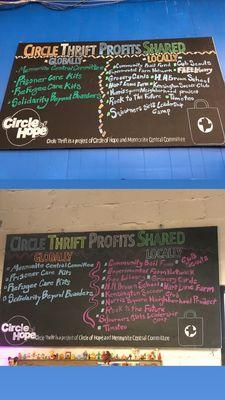 CIRCLE THRIFT PROFITS SHARED
GLOBALLY
Mennonite Central Committee
Prisoner Care Kits
Refugee Care Kits
Solidarity Beyond Boarders
LOCALLY
Community Bail Fund
Cub Scouts
Experimental Farm Network
FREE Library
Grocery Cards
H.A. Brown School
Hart Lane Farm
Kensington Soccer Club
Norris Square Neighborhood Project
Rock to the Future
Timoteo
Sojourners Girls Leadership
Camp
Circle of Hope
Circle Thrift is a project of Circle of Hope and Mennonite Central Committee
CIRCLE THRIFT PROFITS SHARED
GLOBALLY
Mennonite Central Committee
Prisoner Care Kits
Refugee Care Kits
Solidarity Beyond Boarders
LOCALLY
Community Bail Fund
Cub Scouts
Experimental Farm Network
Free Library
Grocery Cards
H.A. Brown School
Hart Lane Farm
Kensington Soccer Club
Norris Square Neighborhood Project
Rock to the Future
Sojourners Girls Leadership
Camp
Timoteo
Circle of Hope
Circle Thrift is a project of Circle of Hope and Mennonite Central Committee